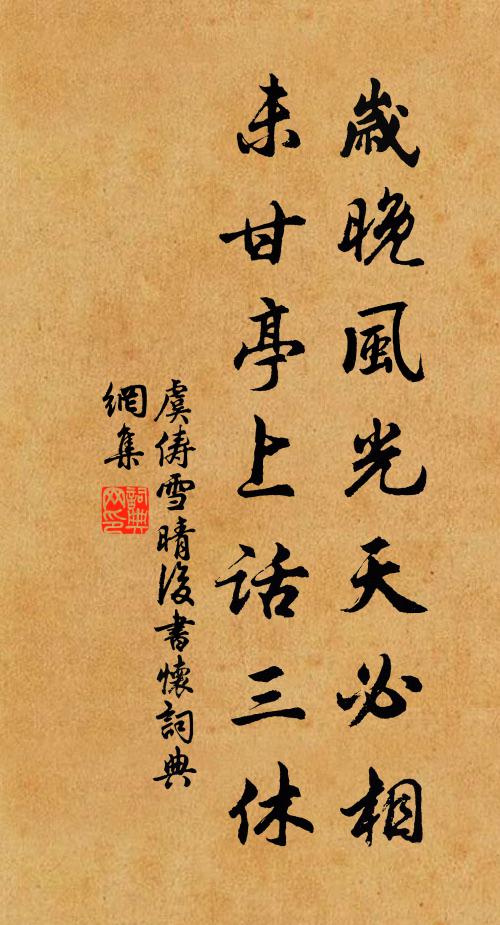 歲晚風光天必相
未甘亭上話三休
虞儔雪晴後書懷詞典
網集
詞典
网印